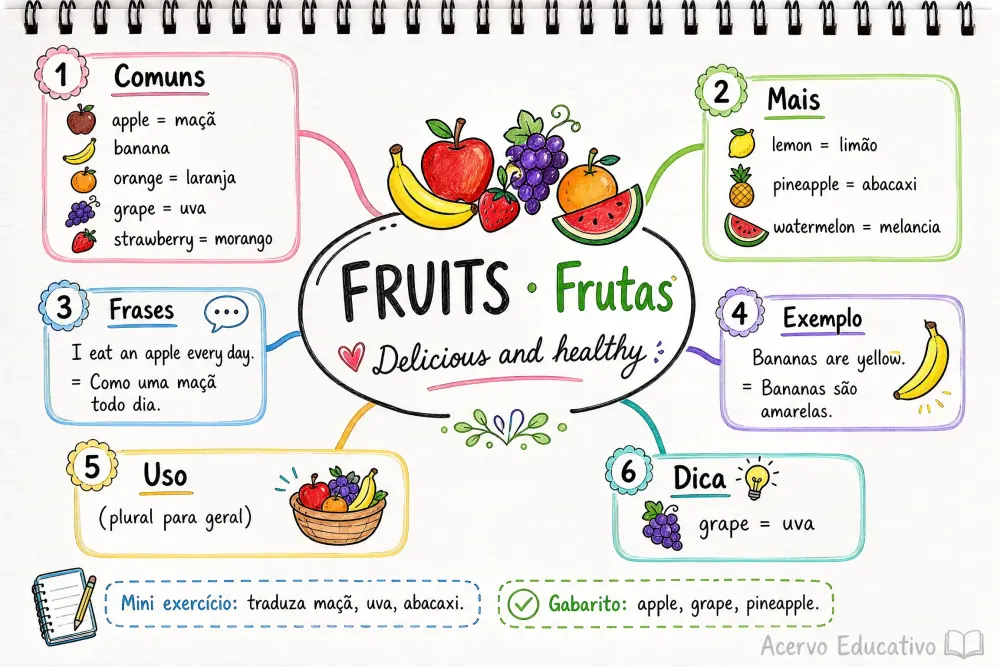 FRUITS · Frutas
Delicious and healthy
1 Comuns
apple = maçã
banana
orange = laranja
grape = uva
strawberry = morango
2 Mais
lemon = limão
pineapple = abacaxi
watermelon = melancia
3 Frases
I eat an apple every day.
= Como uma maçã
todo dia.
4 Exemplo
Bananas are yellow.
= Bananas são
amarelas.
5 Uso
(plural para geral)
6 Dica
grape = uva
Mini exercício: traduza maçã, uva, abacaxi.
Gabarito: apple, grape, pineapple.
Acervo Educativo